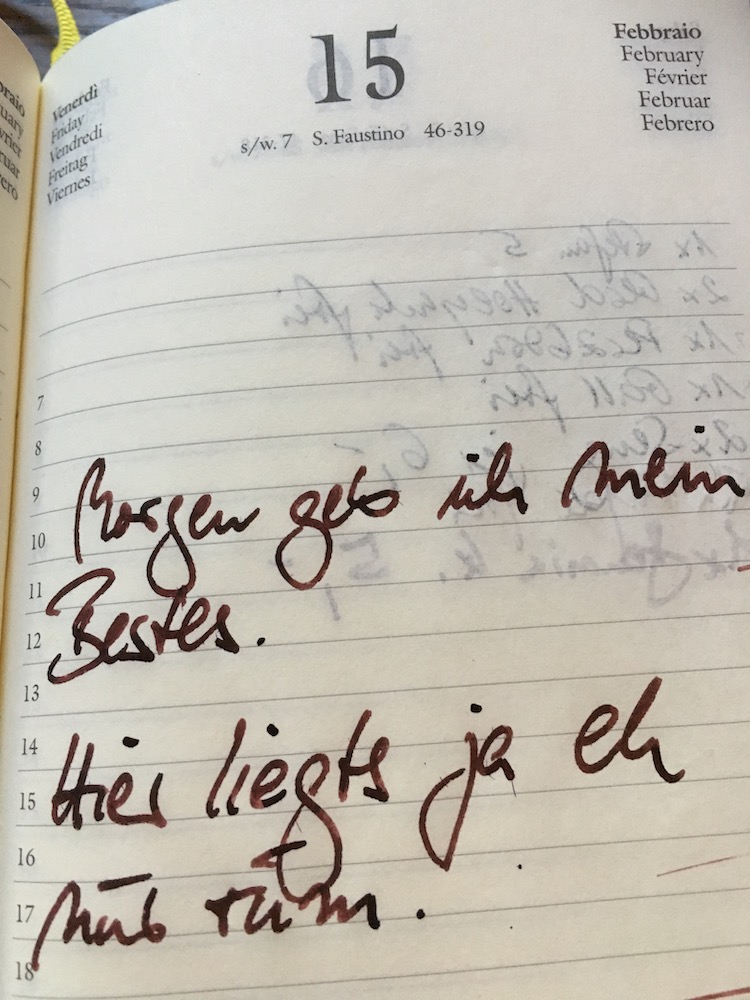 15
Venerdì
Friday
Vendredi
Freitag
Viernes
s/w. 7 S. Faustino 46-319
Febbraio
February
Février
Februar
Febrero
7
8
9
10
11
12
13
14
15
16
17
18
Morgen geb ich mein
Bestes.
Hier liegts ja eh
nur rum.